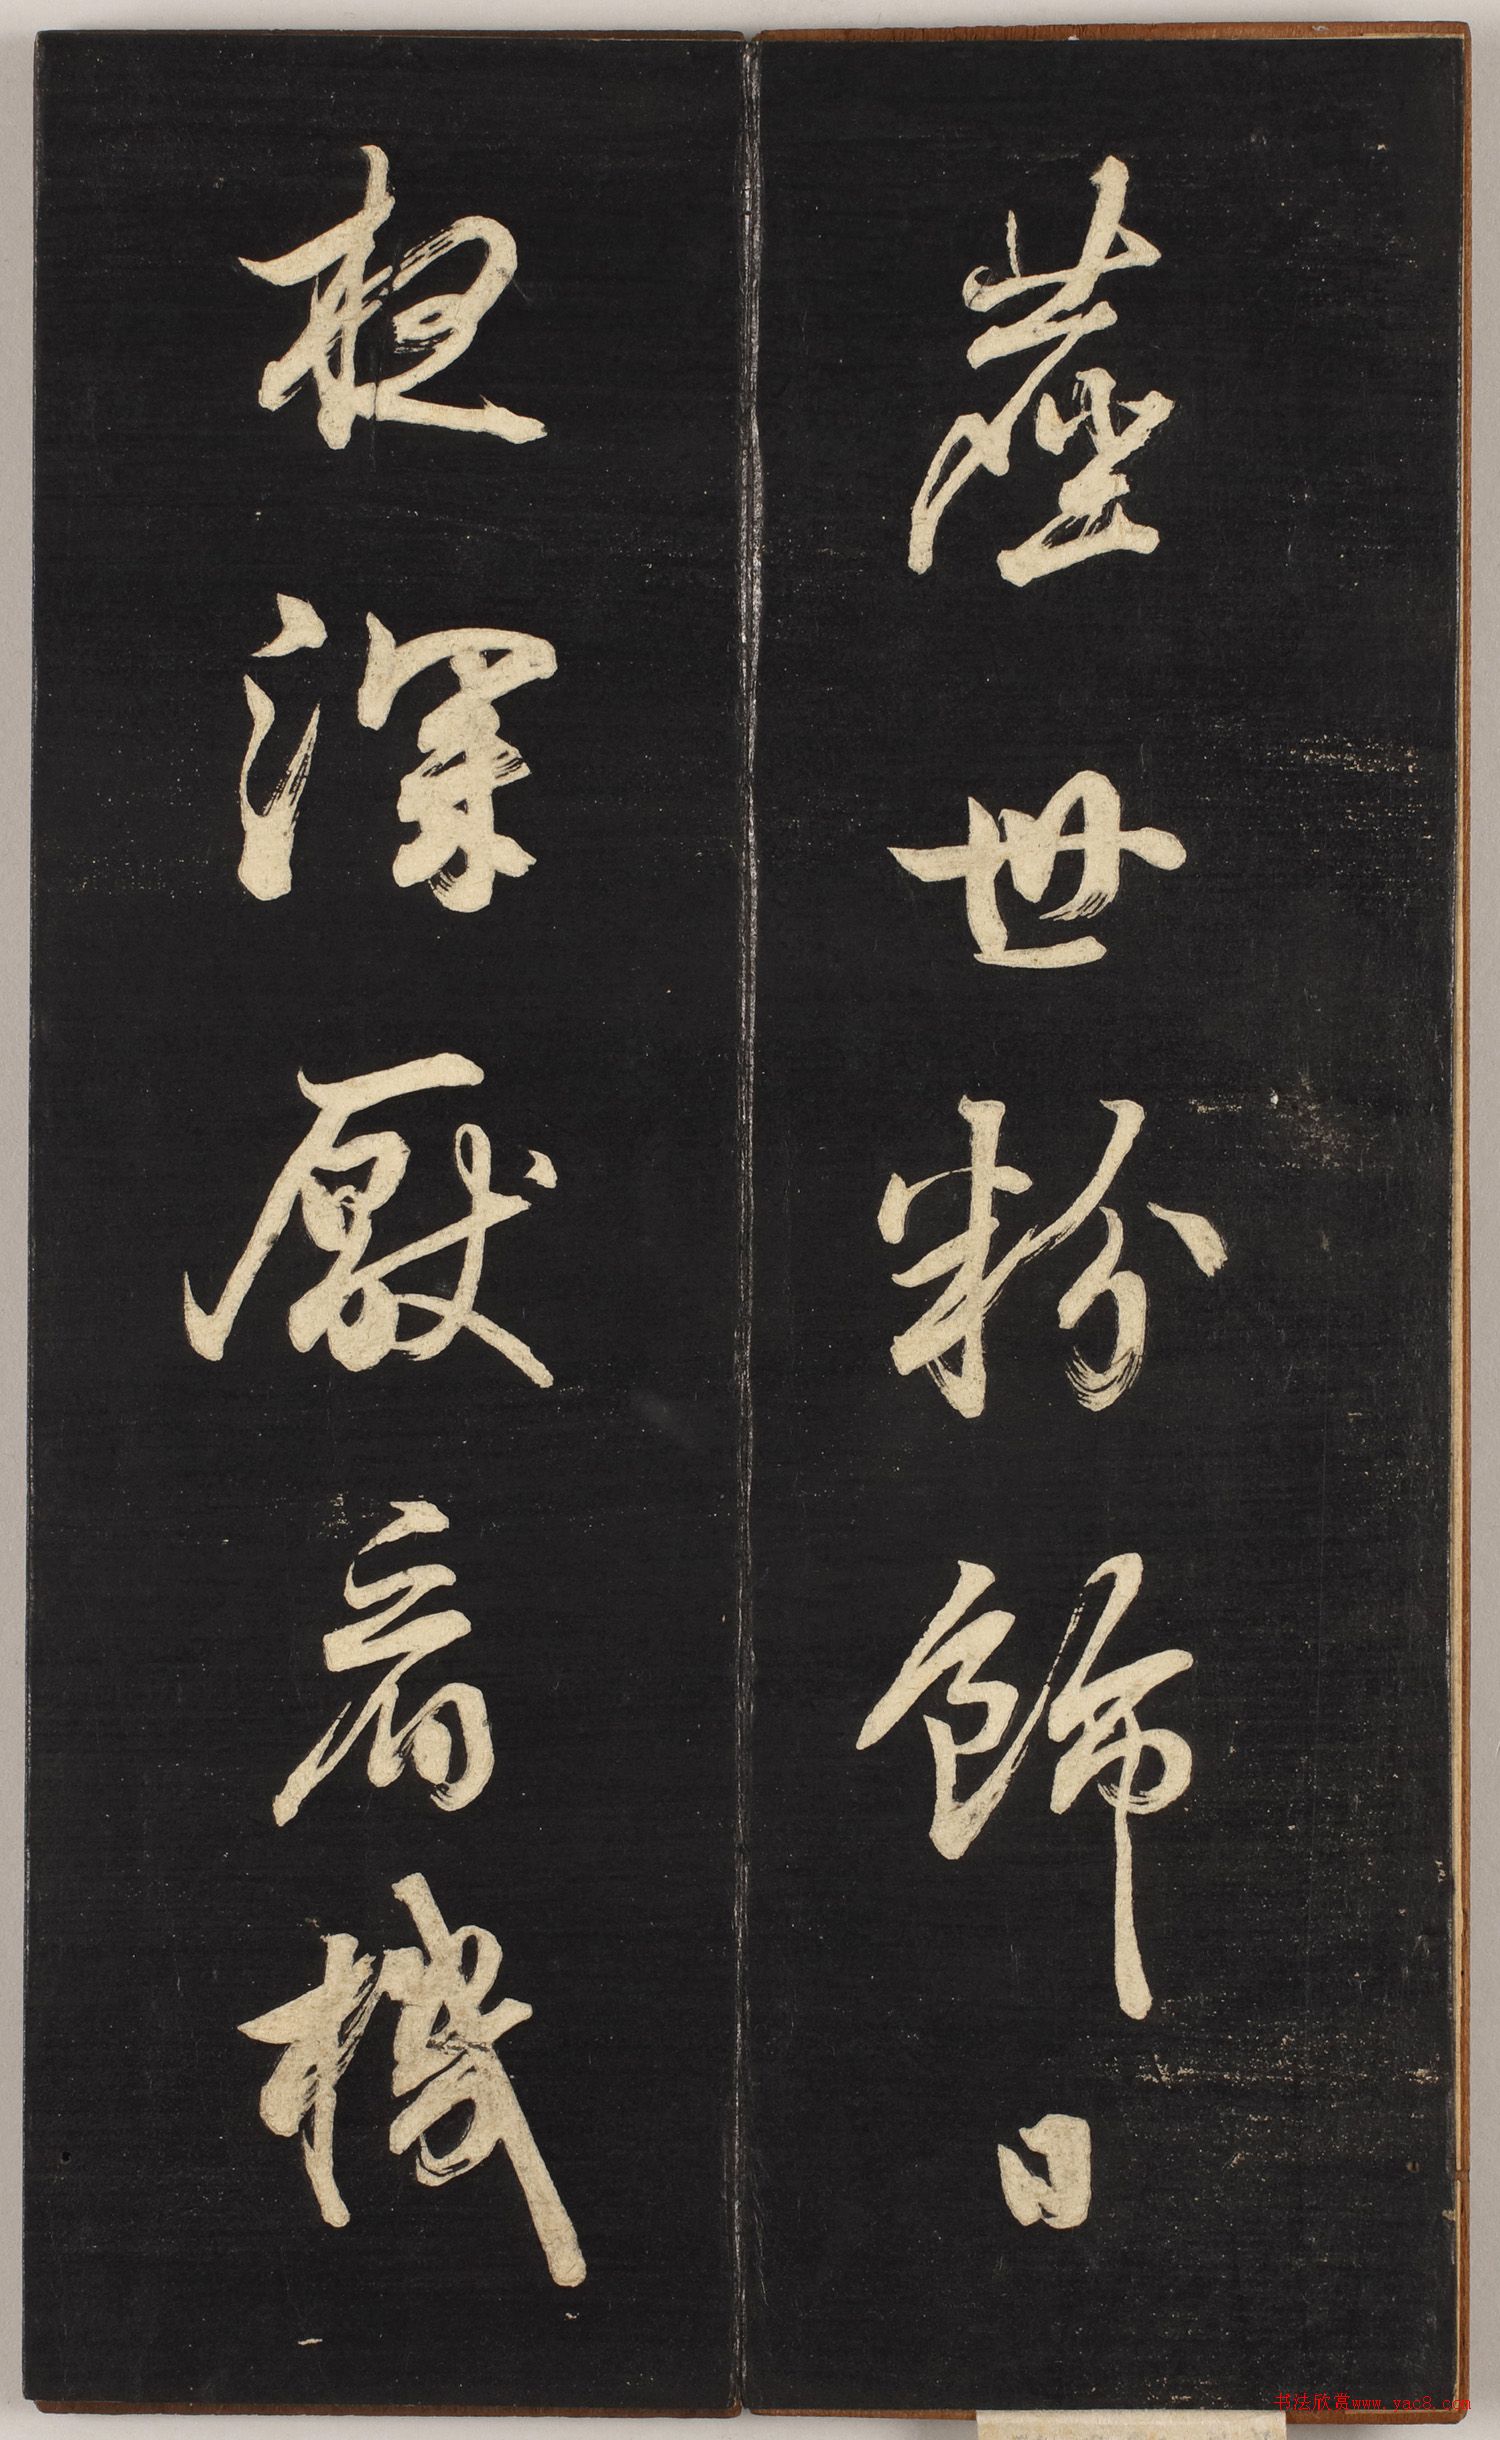 塵世粉飾日
夜深厭看機
书法欣赏www.yac8.com